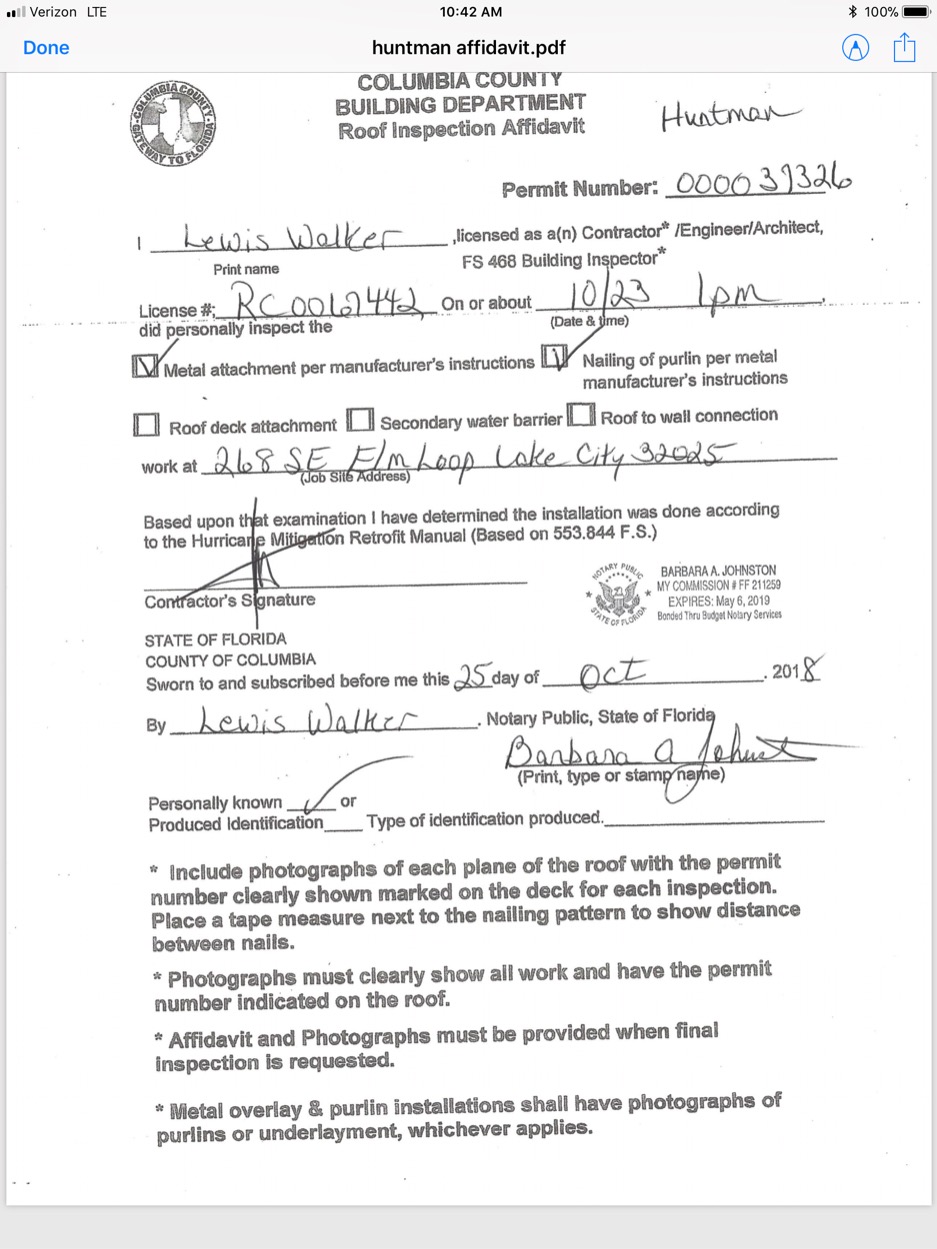 Verizon LTE 10:42 AM 100%
Done huntman affidavit.pdf
COLUMBIA COUNTY
BUILDING DEPARTMENT
Roof Inspection Affidavit
Huntman
COLUMBIA COUNTY
GATEWAY TO FLORIDA
Permit Number: 000037326
I Lewis Walker ,licensed as a(n) Contractor* /Engineer/Architect,
Print name FS 468 Building Inspector*
License #; RC0067442 On or about 10/23 1pm
did personally inspect the (Date & time)
Metal attachment per manufacturer's instructions Nailing of purlin per metal
manufacturer's instructions
Roof deck attachment Secondary water barrier Roof to wall connection
work at 268 SE Elm Loop Lake City 32025
(Job Site Address)
Based upon that examination I have determined the installation was done according
to the Hurricane Mitigation Retrofit Manual (Based on 553.844 F.S.)
Contractor's Signature
NOTARY PUBLIC
STATE OF FLORIDA
BARBARA A. JOHNSTON
MY COMMISSION # FF 211259
EXPIRES: May 6, 2019
Bonded Thru Budget Notary Services
STATE OF FLORIDA
COUNTY OF COLUMBIA
Sworn to and subscribed before me this 25 day of Oct . 2018
By Lewis Walker . Notary Public, State of Florida
Barbara A Johnst
(Print, type or stamp name)
Personally known or
Produced Identification Type of identification produced.
* Include photographs of each plane of the roof with the permit
number clearly shown marked on the deck for each inspection.
Place a tape measure next to the nailing pattern to show distance
between nails.
* Photographs must clearly show all work and have the permit
number indicated on the roof.
* Affidavit and Photographs must be provided when final
inspection is requested.
* Metal overlay & purlin installations shall have photographs of
purlins or underlayment, whichever applies.